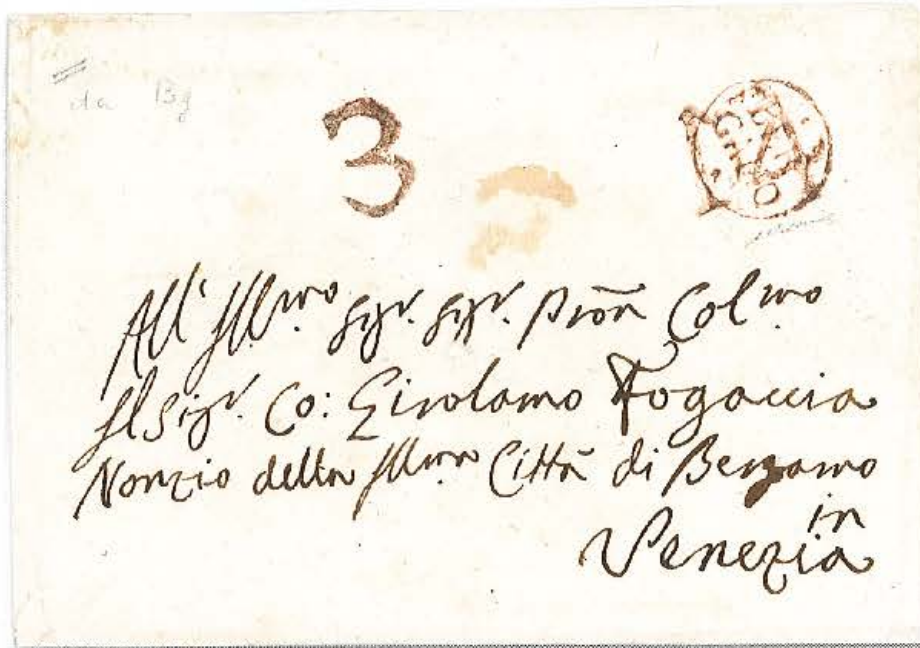 da Bg
3
BER
GAMO
All' Illmo Sigr. Sigr. Pròn Colmo
Il Sigr. Co: Girolamo Fogaccia
Nonzio della Illma Città di Bergamo
in
Venezia